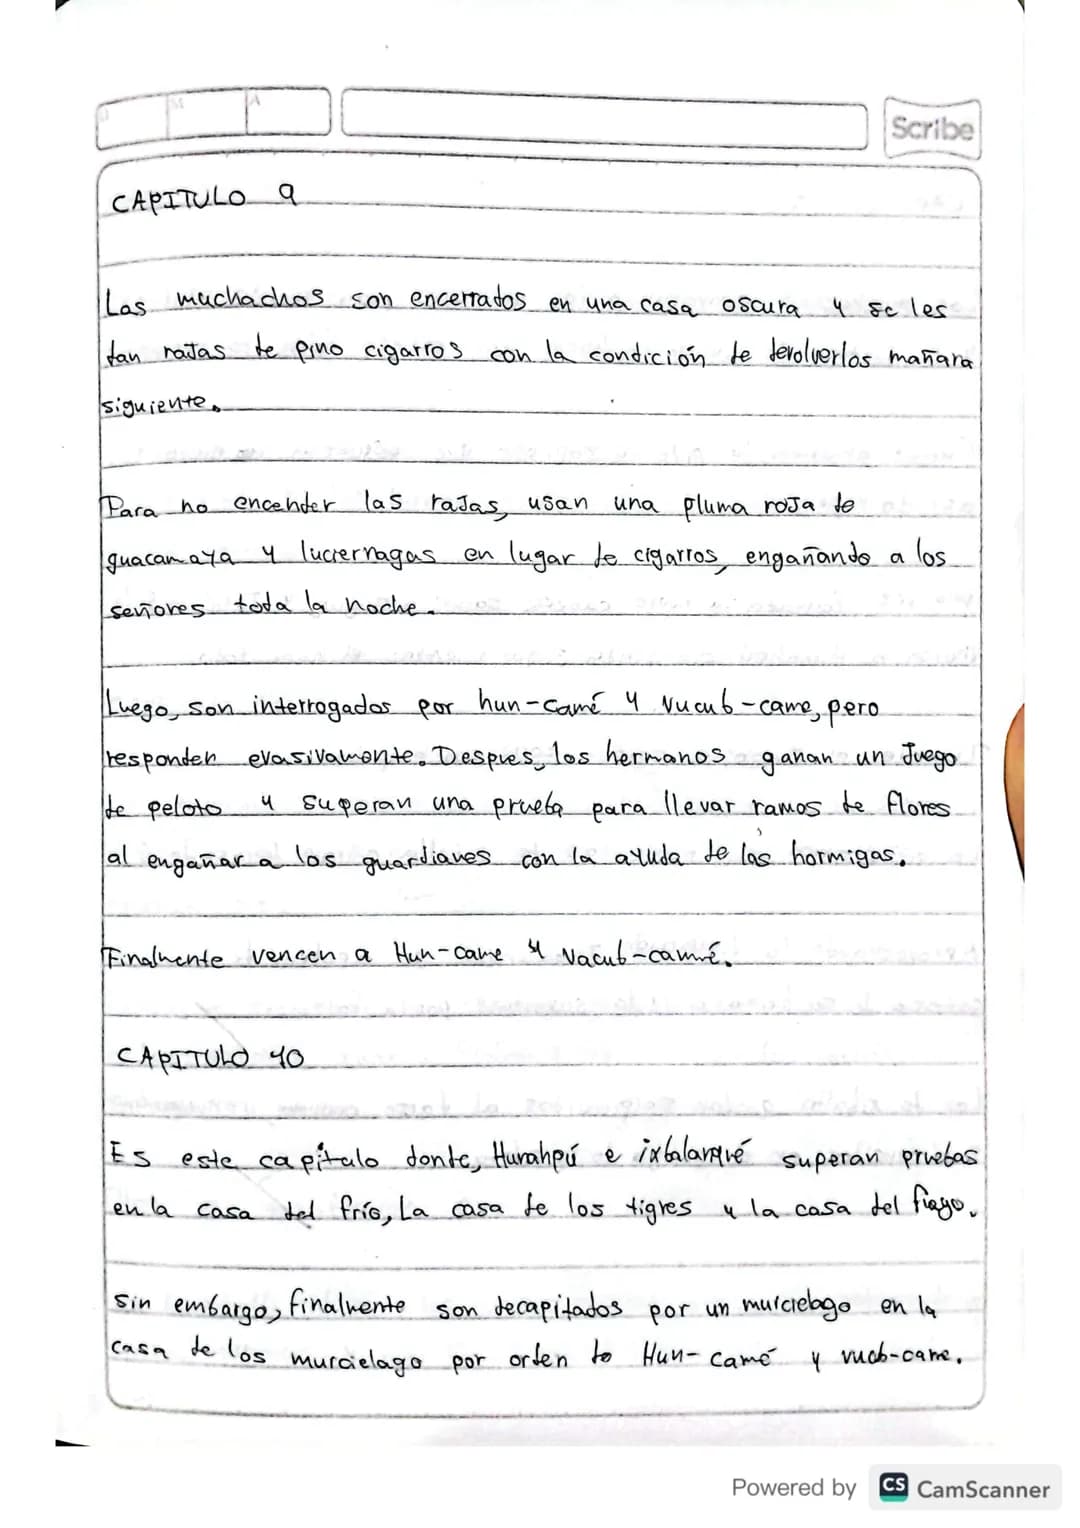 Scribe
CAPITULO 9
Las muchachos son encerrados en una casa oscura y se les
dan rajas de pino cigarros con la condición de devolverlos mañara
siguiente.
Para no encender las rajas, usan una pluma roja de
guacamaya y lucrernagas en lugar de cigarros, engañando a los
señores toda la noche.
Luego, son interrogados por hun-camé y Vucub-came, pero
responden evasivamente. Despues, los hermanos ganan un Juego
de peloto y superan una prueba para llevar ramos de flores
al engañar a los guardianes con la ayuda de las hormigas.
Finalmente vencen a Hun-came y Vacub-camé.
CAPITULO 10
Es este capitulo donde, Hurahpú e ixbalanqué superan pruebas
en la casa del frío, La casa de los tigres y la casa del fuego.
Sin embargo, finalmente son decapitados por un murcielago en la
casa de los murcielago por orden to Hun-camé y vucb-came.
Powered by CS CamScanner